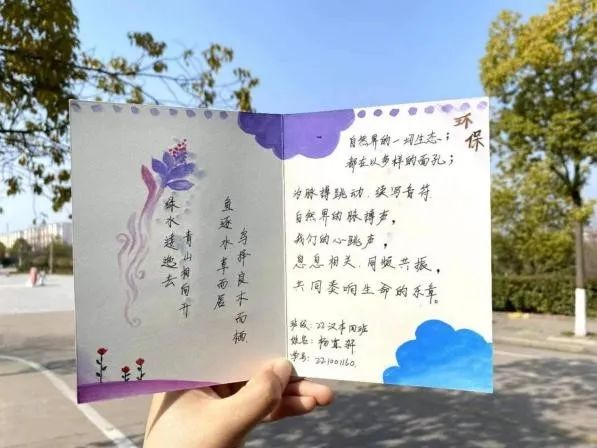 绿水逶迤去
青山相向开
鱼逐水草而居
鸟择良木而栖
环保
自然界的一切生态；
都在以多样的面孔；
为脉搏跳动，续写音符
自然界的脉搏声，
我们的心跳声，
息息相关，同频共振，
共同奏响生命的乐章。
班级：22汉本四班
姓名：杨
学号：221001160.